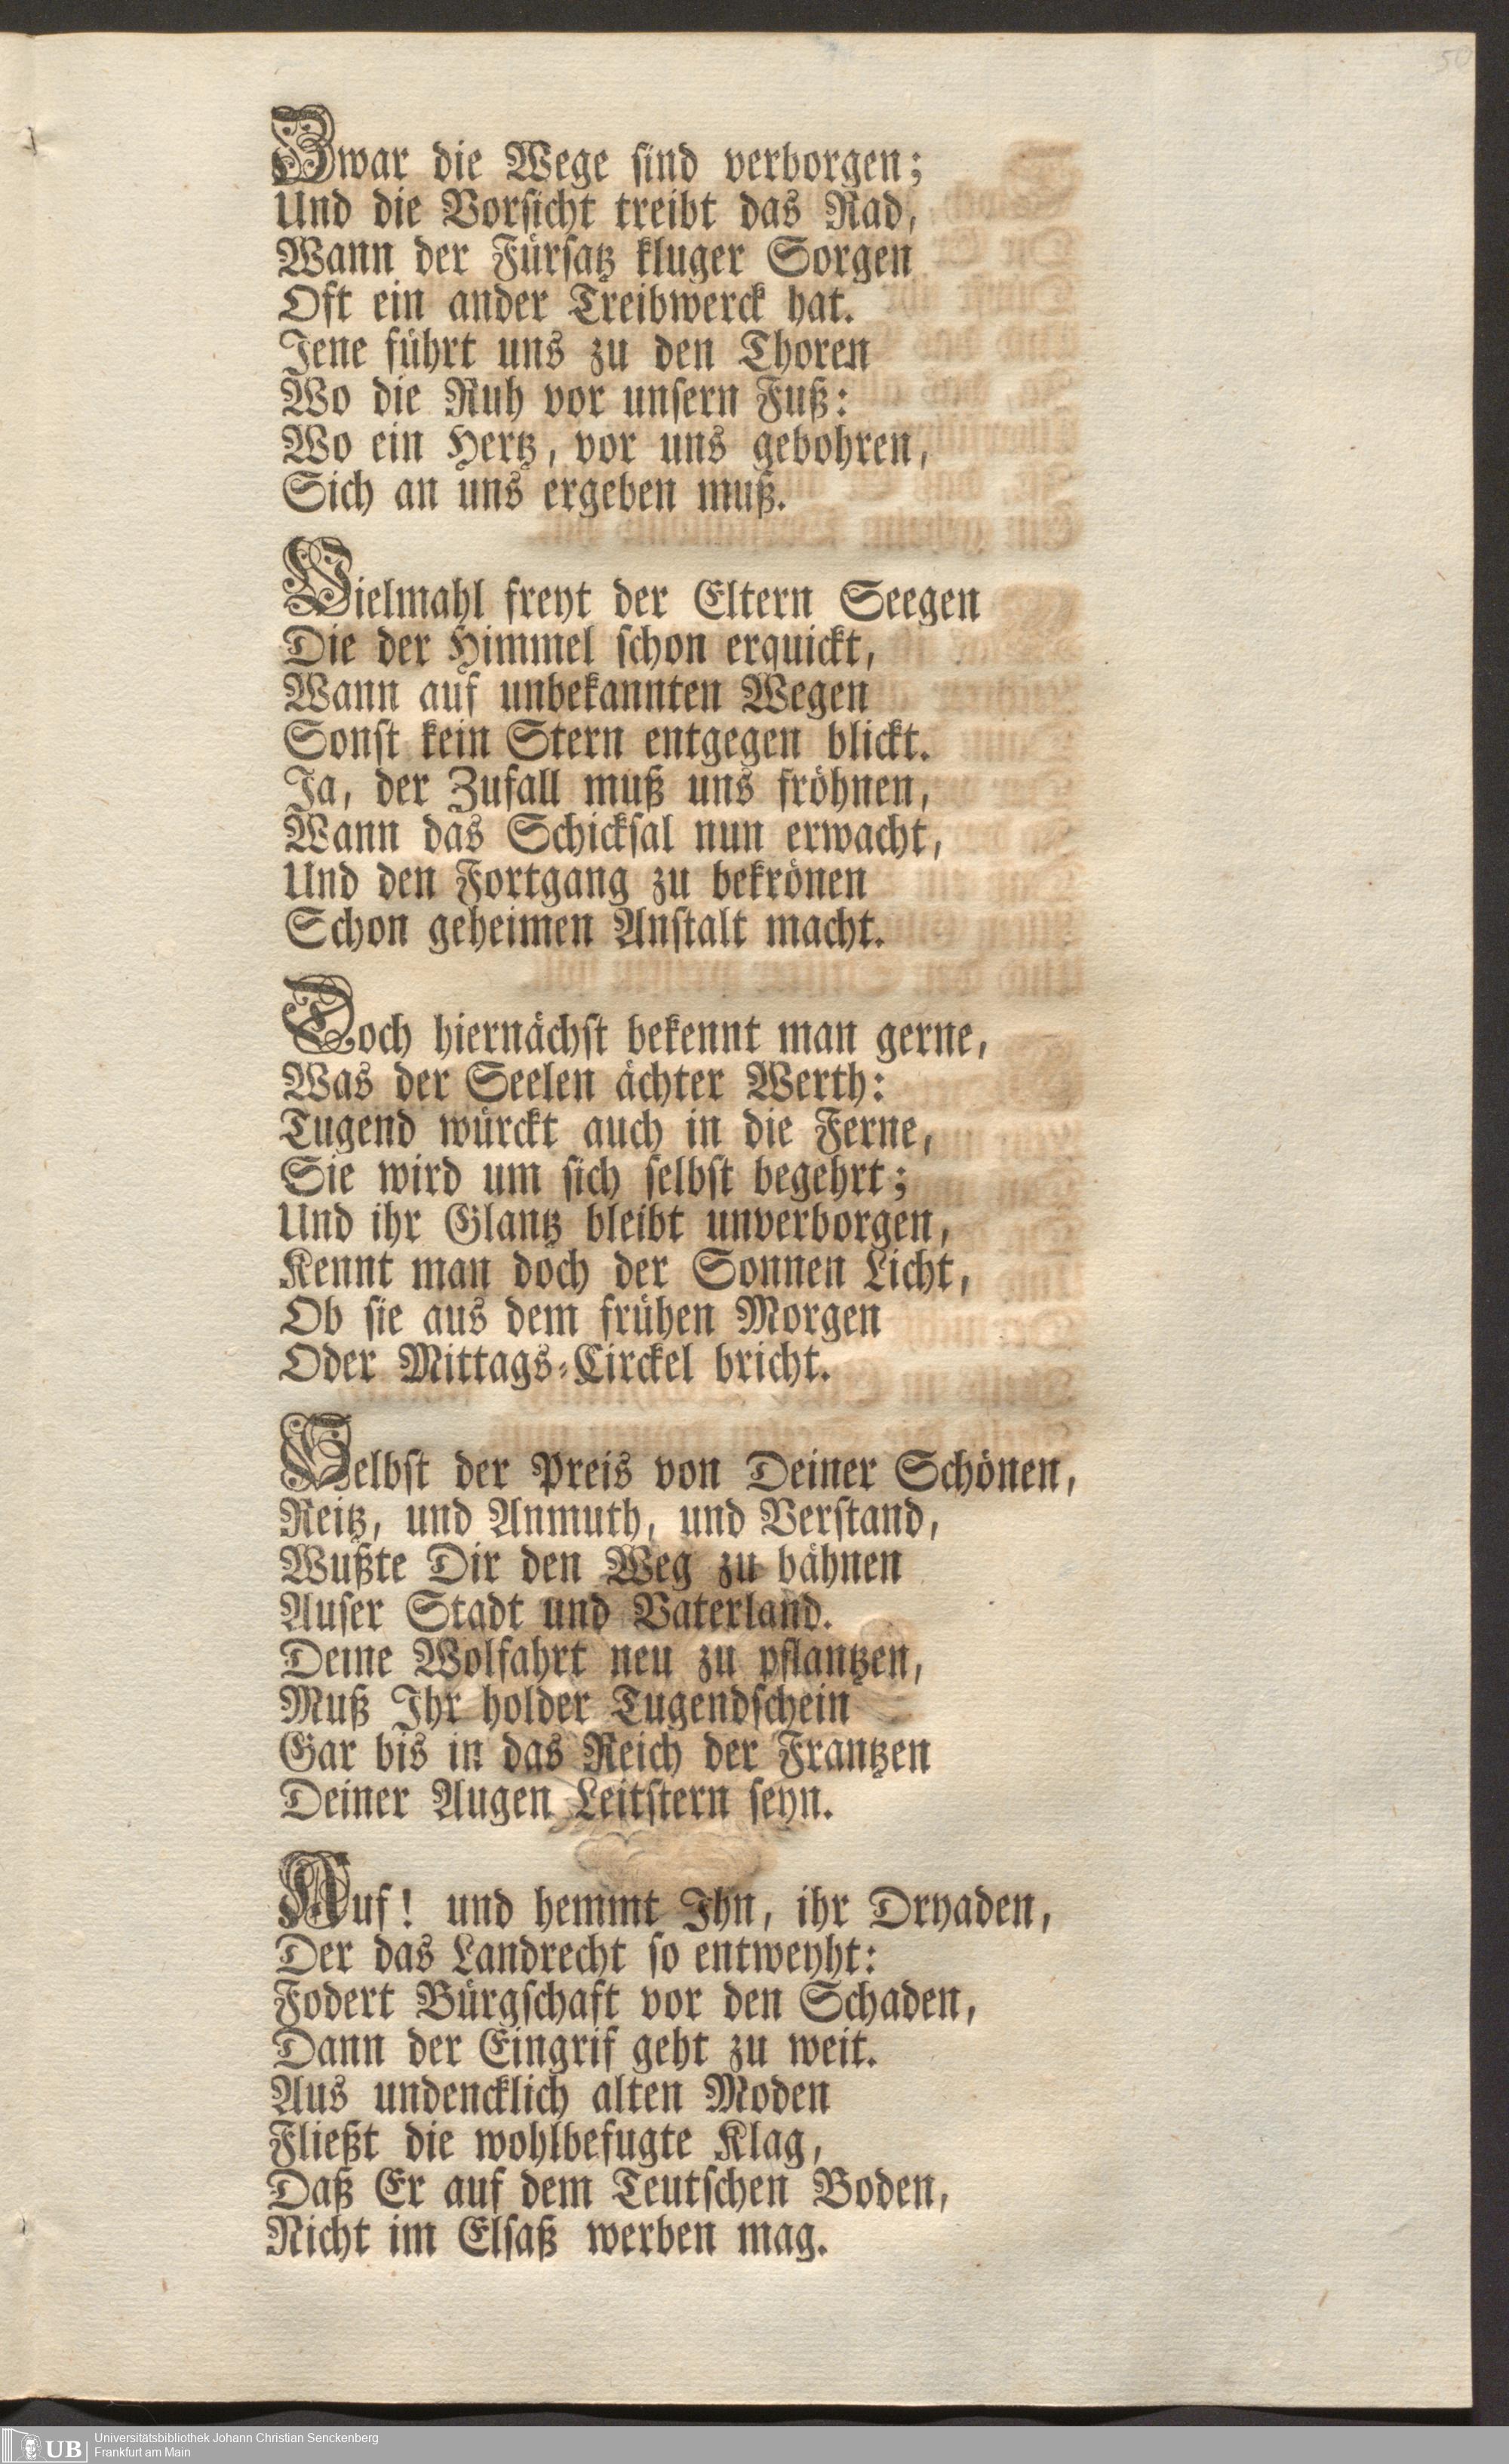 50
Zwar die Wege sind verborgen;
Und die Vorsicht treibt das Rad,
Wann der Fürsatz kluger Sorgen
Oft ein ander Treibwerck hat.
Jene führt uns zu den Thoren
Wo die Ruh vor unsern Fuß:
Wo ein Hertz, vor uns gebohren,
Sich an uns ergeben muß.
Vielmahl freyt der Eltern Seegen
Die der Himmel schon erquickt,
Wann auf unbekannten Wegen
Sonst kein Stern entgegen blickt.
Ja, der Zufall muß uns fröhnen,
Wann das Schicksal nun erwacht,
Und den Fortgang zu bekrönen
Schon geheimen Anstalt macht.
Doch hiernächst bekennt man gerne,
Was der Seelen ächter Werth:
Tugend würckt auch in die Ferne,
Sie wird um sich selbst begehrt;
Und ihr Glantz bleibt unverborgen,
Kennt man doch der Sonnen Licht,
Ob sie aus dem frühen Morgen
Oder Mittags-Circkel bricht.
Selbst der Preis von Deiner Schönen,
Reitz, und Anmuth, und Verstand,
Wußte Dir den Weg zu bähnen
Auser Stadt und Vaterland.
Deine Wolfahrt neu zu pflantzen,
Muß Ihr holder Tugendschein
Gar bis in das Reich der Frantzen
Deiner Augen Leitstern seyn.
Auf! und hemmt Ihn, ihr Dryaden,
Der das Landrecht so entweyht:
Fodert Bürgschaft vor den Schaden,
Dann der Eingrif geht zu weit.
Aus undencklich alten Moden
Fließt die wohlbefugte Klag,
Daß Er auf dem Teutschen Boden,
Nicht im Elsaß werben mag.
UB Universitätsbibliothek Johann Christian Senckenberg
Frankfurt am Main